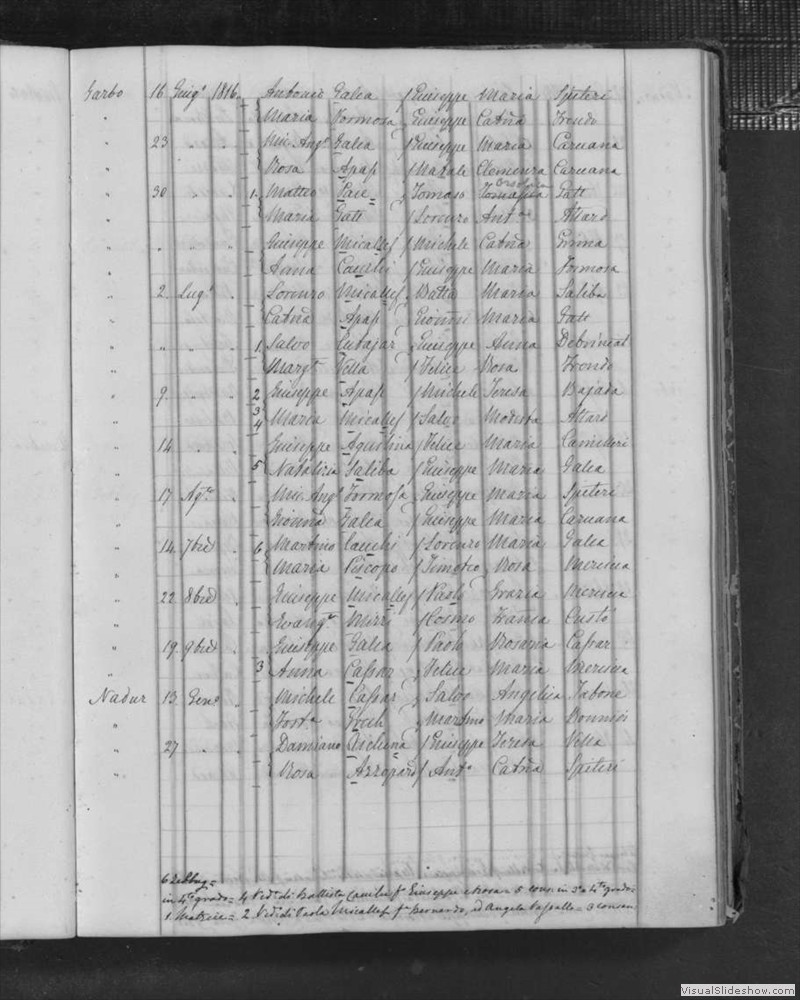 Garbo 16 Giug.o 1816. Antonio Galea f Giuseppe Maria Spiteri
" Maria Formosa Giuseppe Catña Frendo
" 23 " " Mic. Ang.o Galea f Giuseppe Maria Caruana
" Rosa Apap f Natale Clemenza Caruana
" 30 " " 1. Matteo f Tomaso Gatt
" Maria Gatt f Lorenzo Ant.a Attard
" " " " Giuseppe Micallef f Michele Catña Grima
" Anna Cauchi f Giuseppe Maria Formosa
" 2. Lug.o " Lorenzo Micallef Batta Maria Saliba
" Catña Apap Maria Gatt
" " " " 1 Salvo Cutajar Giuseppe Anna
" Marg.ta Vella f Felice Rosa Frendo
" 9 " " 2 Giuseppe Apap f Michele Teresa Bajada
" 3 4 Maria Micallef f Salvo Modesta Attard
" 14 " " Giuseppe Agustina f Felice Maria Camilleri
" 5 Natalizia Saliba f Giuseppe Maria Galea
" 17 Ag.to " Mic. Ang.o Formosa Giuseppe Maria Spiteri
" Galea f Giuseppe Maria Caruana
" 14 7bre " 6 Martino Cauchi f Lorenzo Maria Galea
" Maria Piscopo f Timoteo Rosa Mercieca
" 22 8bre " Giuseppe Micallef f Paolo Grazia Mercieca
" Evang.ta Mizzi f Cosmo
" 19 9bre " Giuseppe Galea f Paolo Rosaria Cassar
" 3 Anna Cassar f Felice Maria Mercieca
Nadur 13 Gen.o Michele Cassar f Salvo Angelica Tabone
" Martino Maria Bonnici
" 27 " " Damiano f Giuseppe Teresa Vella
" Rosa Azzopardi f Ant.o Catña Spiteri
6 Zebbug =
in 4.to grado = 4 Ved.o di Battista Camilleri f.a Giuseppe e Rosa = 5 cons. in 3.o e 4.to grado
1. Matrice = 2 Ved. di Paolo Micallef f.a Bernardo, ed Angela Vassallo = 3 consan
VisualSlideshow.com